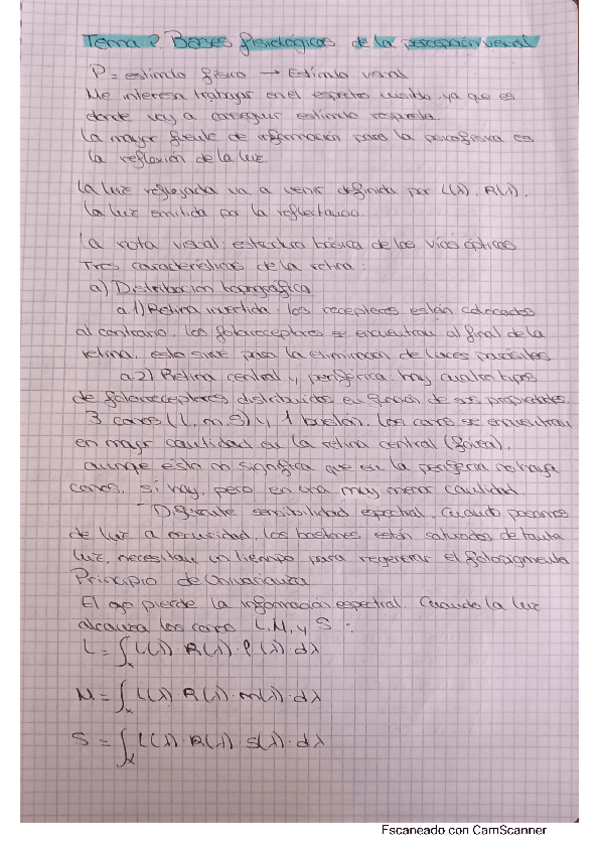 Tema 2. Bases fisiológicas de la percepción visual
P = estímulo físico → Estímulo visual
Me interesa trabajar en el espectro visible ya que es
donde voy a conseguir estímulo respuesta.
La mayor fuente de información para la psicofísica es
la reflexión de la luz
La luz reflejada va a venir definida por L(λ), R(λ).
La luz emitida por la reflectancia.
La ruta visual: estructura básica de las vías ópticas
Tres características de la retina:
a) Distribución topográfica
a.1) Retina invertida: los receptores están colocados
al contrario, los fotorreceptores se encuentran al final de la
retina, esto sirve para la eliminación de luces parásitas
a.2) Retina central y periférica: hay cuatro tipos
de fotorreceptores distribuidos en función de sus propiedades.
3 conos (L, m, S) y 1 bastón. Los conos se encuentran
en mayor cantidad en la retina central (fóvea),
aunque esto no significa que en la periferia no haya
conos, si hay, pero en una muy menor cantidad
- Diferente sensibilidad espectral. Cuando pasamos
de luz a oscuridad, los bastones están saturados de tanta
luz, necesitan un tiempo para regenerar el fotopigmento
Principio de Univarianza
El ojo pierde la información espectral. Cuando la luz
alcanza los conos L, M, y S :
L = ∫λ L(λ) · R(λ) · l(λ) · dλ
M = ∫λ L(λ) · R(λ) · m(λ) · dλ
S = ∫λ L(λ) · R(λ) · s(λ) · dλ
Escaneado con CamScanner